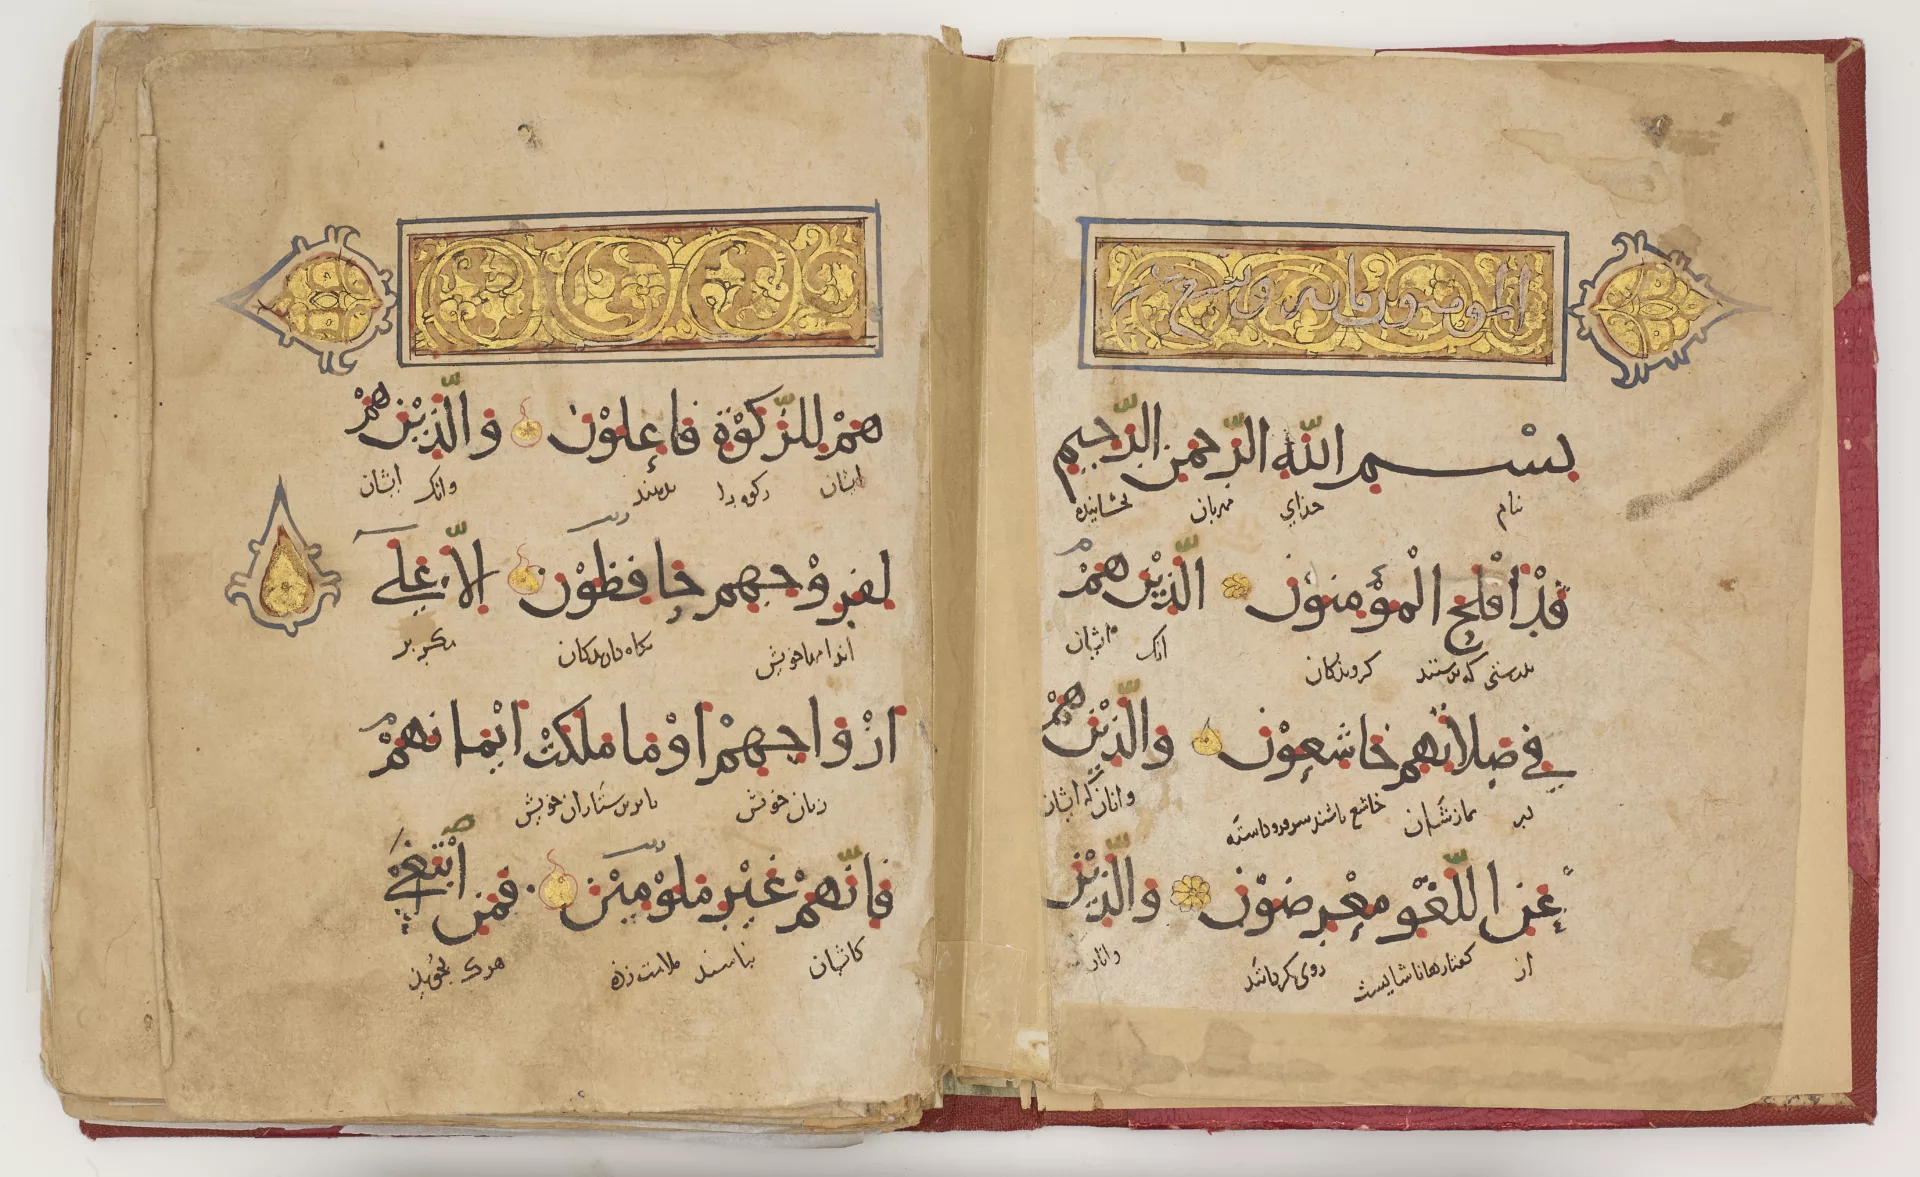 المومنون مائه و
بِسْمِ اللّٰهِ الرَّحْمٰنِ الرَّحِيمِ
بنام خدای مهربان بخشاینده
قَدْ اَفْلَحَ الْمُؤْمِنُوْنَ الَّذِيْنَ هُمْ
بدرستی که برستند کرویدکان انک ایشان
فِي صَلَاتِهِمْ خَاشِعُوْنَ وَالَّذِيْنَ هُمْ
نمازشان خاشع باشند سرفروداشته وانان که ایشان
عَنِ اللَّغْوِ مُعْرِضُوْنَ وَالَّذِيْنَ
از کفتارهاناشایست روی وانان
هُمْ لِلزَّكٰوةِ فَاعِلُوْنَ وَالَّذِيْنَ هُمْ
ایشان زکوه را وانک ایشان
لِفُرُوْجِهِمْ حَافِظُوْنَ اِلَّا عَلٰى
اندامهاخویش نکاه دارندکان مکر بر
اَزْوَاجِهِمْ اَوْ مَا مَلَكَتْ اَيْمَانُهُمْ
زنان خویش یا پرستاران خویش
فَاِنَّهُمْ غَيْرُ مَلُوْمِيْنَ فَمَنِ ابْتَغٰى
کایشان نباشند ملامت زده هرک بجوید